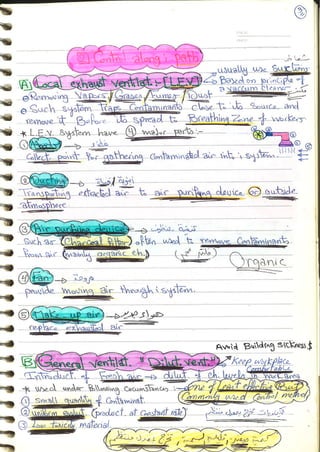 ② Control along path
A) Local exhaust ventilat. :- [L.E.V] usually use Suction
Based on principle of
a vacuum cleaner
Removing Vapors / Gases / Fumes / Dust
Such system Traps Contaminants close to its source and
remove it Before its spread to Breathing Zone of workers
* L.E.V. system have ④ major parts :-
① Hood
Collect point for gathering contaminated air into system.
② Ducting
Transporting extracted air to air purifying device or outside
atmosphere
③ Air purifying device
Such as Charcoal filter often used to remove Contaminants
from air (mainly organic ch.)
Organic
④ Fan
provide moving air through system.
⑤ Make up air
replace exhausted air
Avoid Building Sickness
B General ventilat. "Dilut. vent." Keep workplace
Comfortable
Introduct. of Fresh air → dilut. of ch. levels in work area
* used under Following circumstances :- one of least effective But
Commonly used Control method
① small quantity of Contaminat.
② uniform evolut. (product. at Constant rate)
③ Low toxicity material